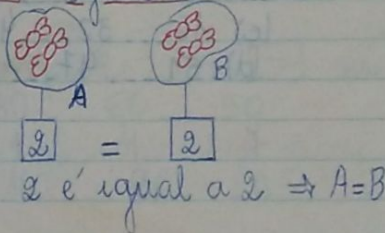 A B
2 = 2
2 é igual a 2 ⇒ A=B